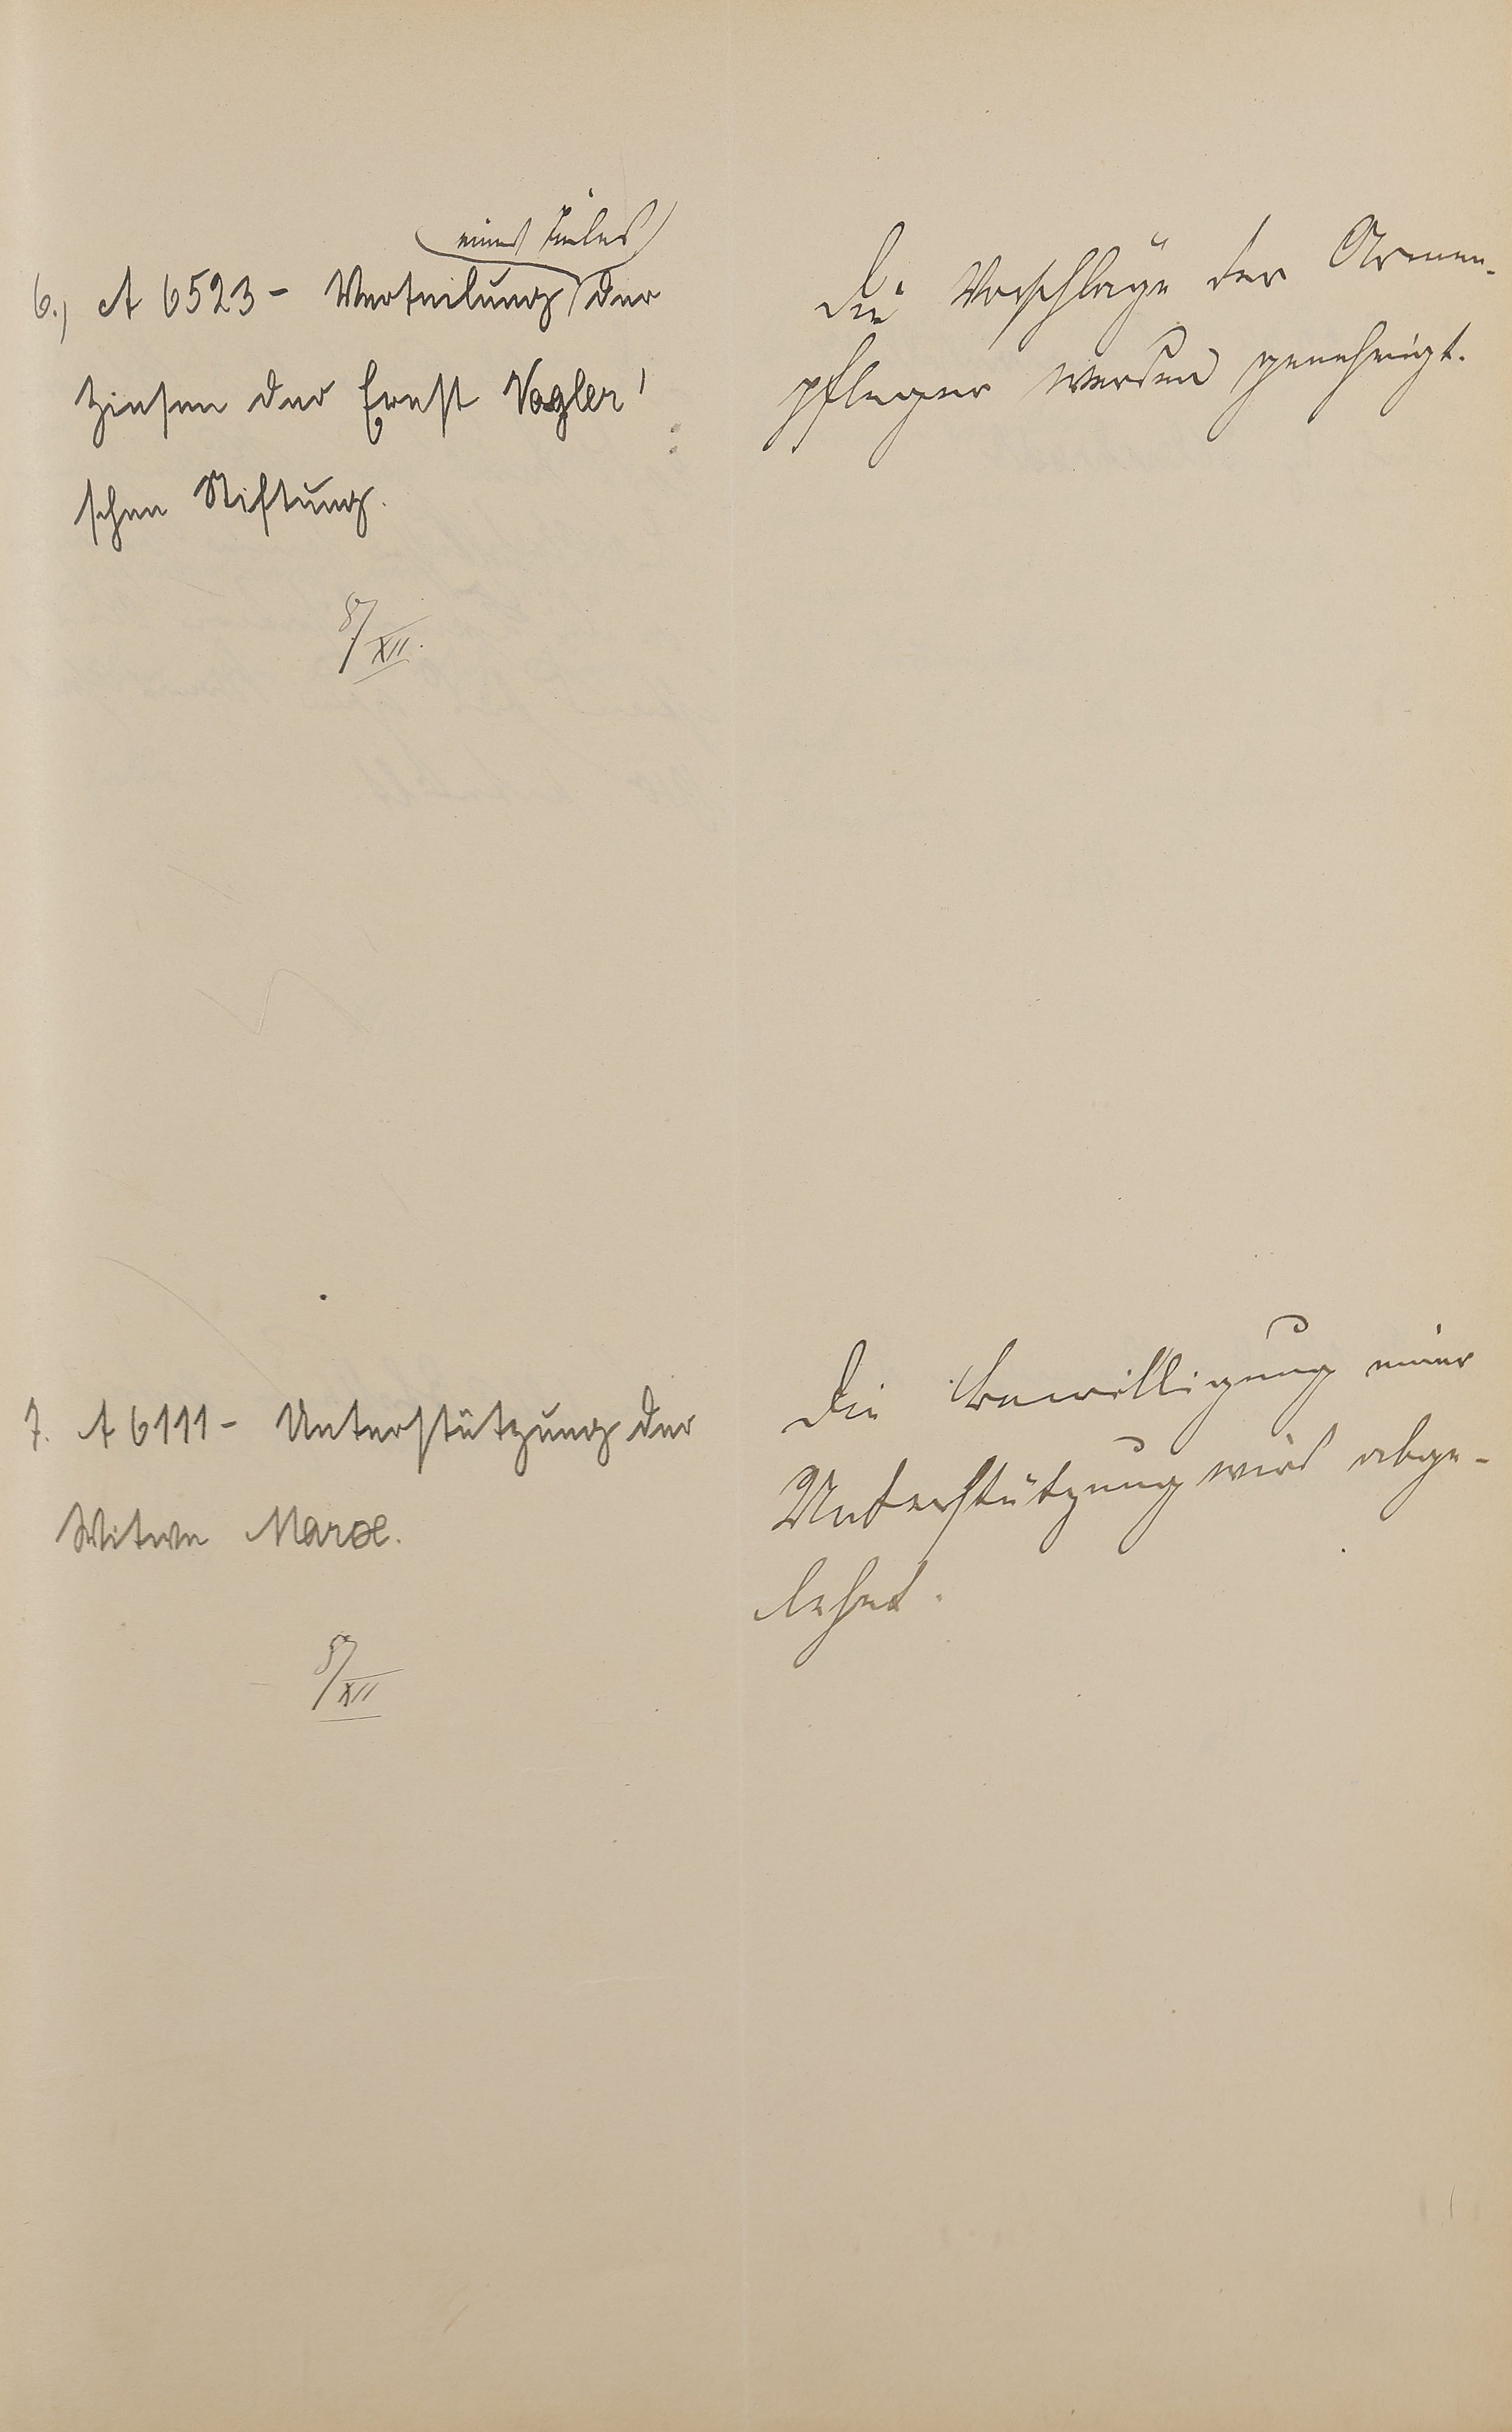 eines Teiles
6.) A 6523 - Verteilung der
Zinsen der Ernst Vogler'
schen Stiftung.
8/XII.
Die Vorschläge der Armen-
pfleger werden genehmigt.
7. A 6111 - Unterstützung der
Witwe Marx.
8/XII
Die Bewilligung einer
Unterstützung wird abge-
lehnt.